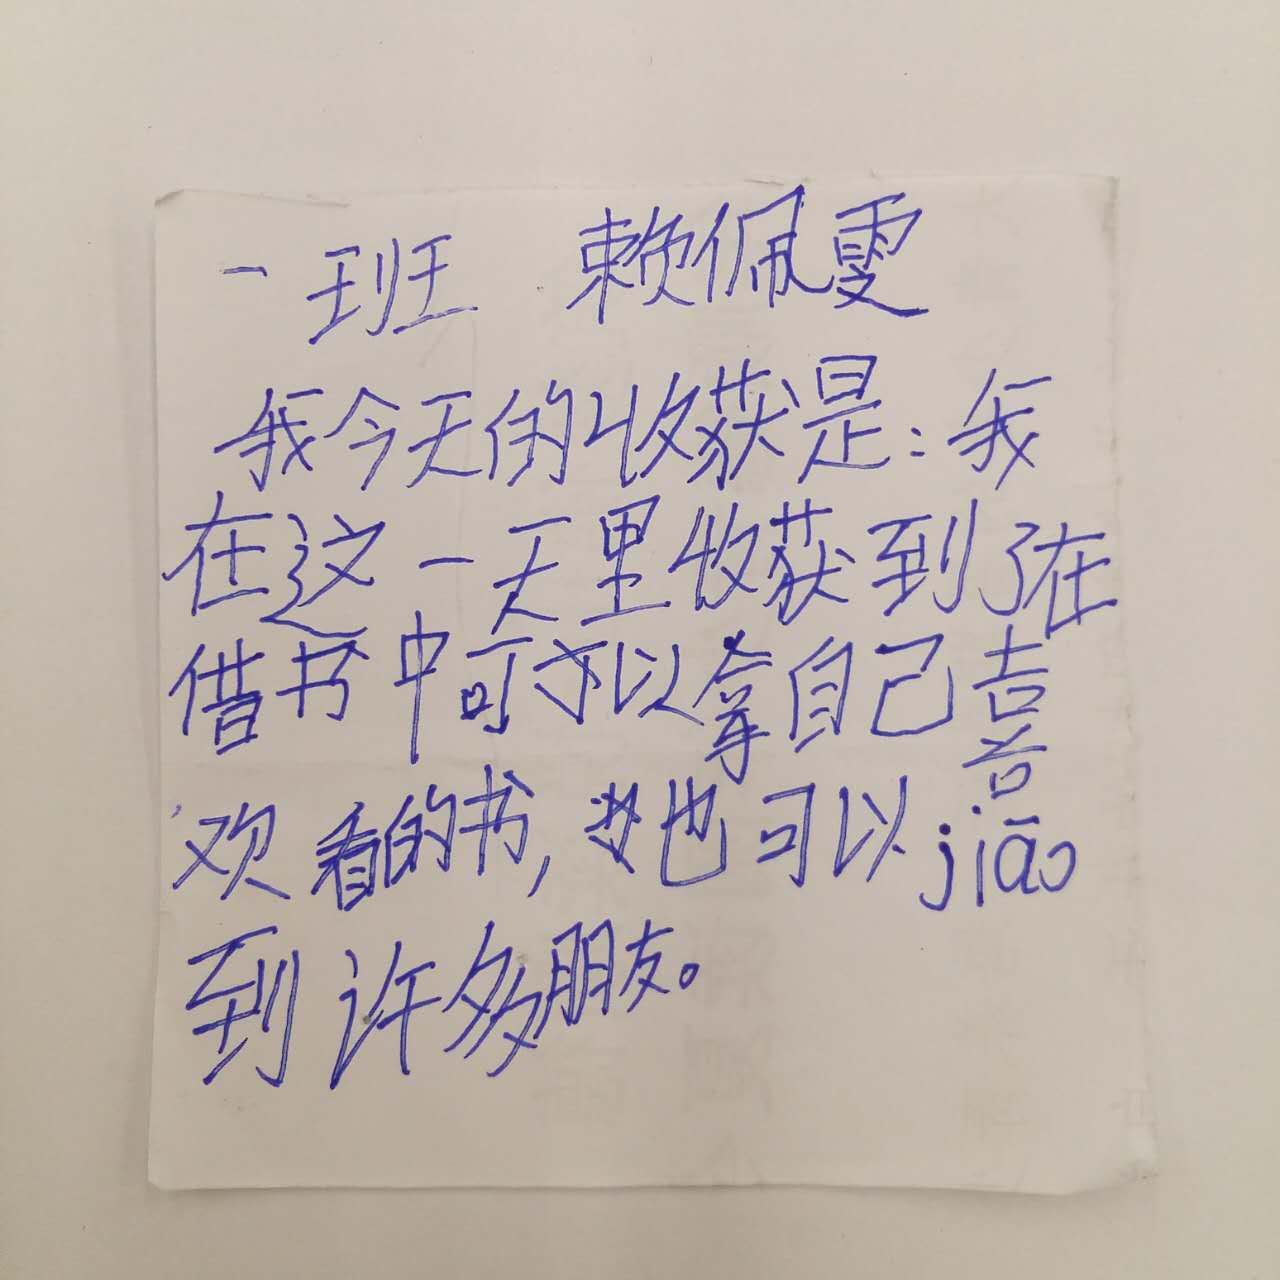 一班 赖佩雯
我今天的收获是:我
在这一天里收获到了在
借书中可以拿自己喜
欢看的书,也可以jiāo
到许多朋友。